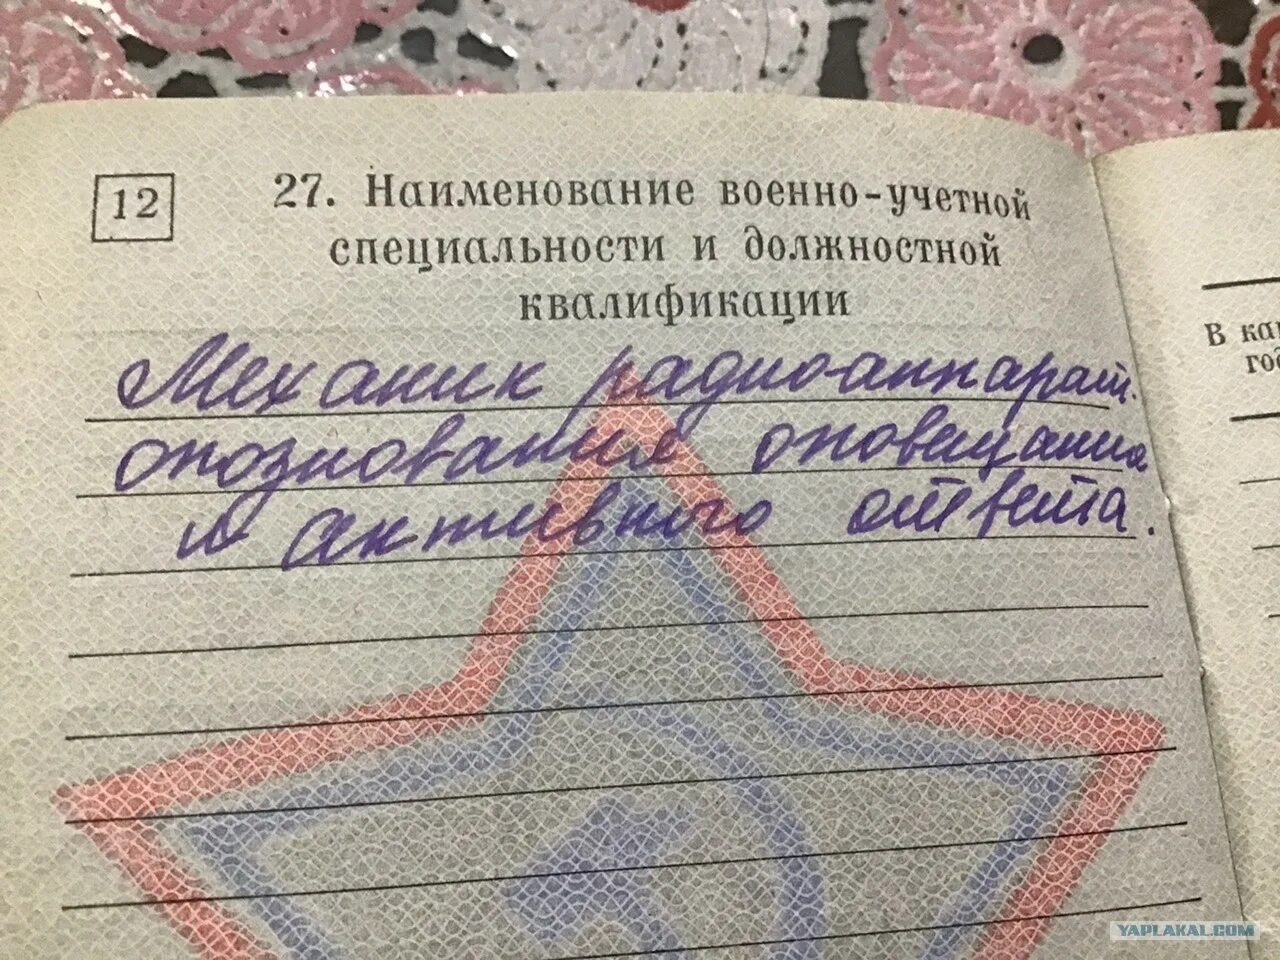 12
27. Наименование военно-учетной
специальности и должностной
квалификации
Механик радиоаппарат.
опознования оповещания
и активного ответа.
В ка
го
YAPLAKAL.COM